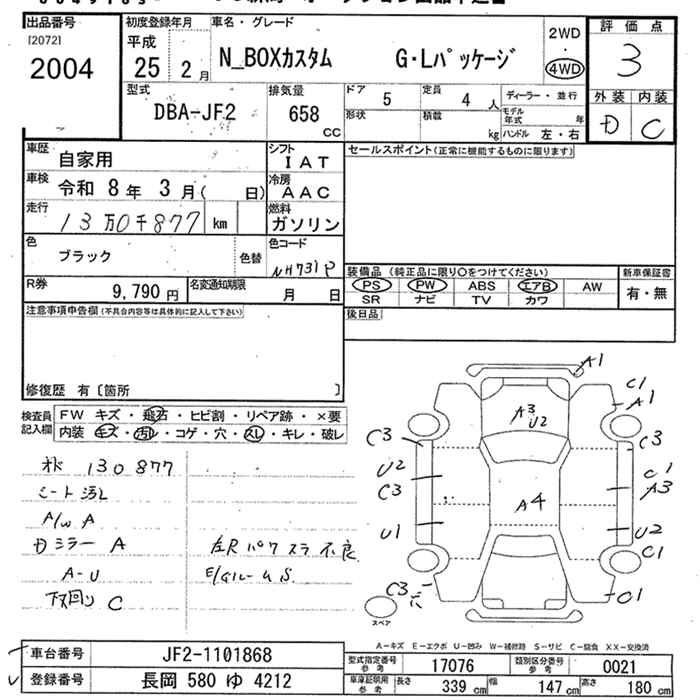 出品番号 初度登録年月 車名・グレード 評価点
[2072] 平成 2WD
2004 25 2月 N_BOXカスタム G・Lパッケージ ・ 3
4WD
型式 排気量 ドア 5 定員 4人 ディーラー・並行 外装 内装
DBA-JF2 658 cc 形状 積載 kg モデル年式 年 D C
ハンドル 左・右
車歴 自家用 シフト IAT セールスポイント(正常に機能するものに限ります)
車検 令和 8年 3月( 日) 冷房 AAC
走行 13万0千877 km 燃料 ガソリン
色 ブラック 色替 色コード NH731P
装備品(純正品に限り○をつけてください) 新車保証書
R券 9,790円 名変通知期限 月 日 PS PW ABS エアB AW 有・無
SR ナビ TV カワ
注意事項申告欄(不具合内容等は具体的に記入して下さい) 後日品
修復歴 有〔箇所 〕
検査員記入欄 FW キズ・飛石・ヒビ割・リペア跡・×要
内装 キズ・汚れ・コゲ・穴・スレ・キレ・破レ
130877
シート汚れ
A/W A
Dミラー A
A-U
下回り C
左R パワスラ不良
A1
C1
A1
A3
U2
C3
C3
U2
C1
C3
A3
A4
U1
U2
C1
C3
C1
スペア
A-キズ E-エクボ U-凹み W-補修跡 S-サビ C-腐食 XX-交換済
車台番号 JF2-1101868 型式指定番号 参考 17076 類別区分番号 参考 0021
登録番号 長岡 580 ゆ 4212 車庫証明用 参考 長さ 339 cm 幅 147 cm 高さ 180 cm